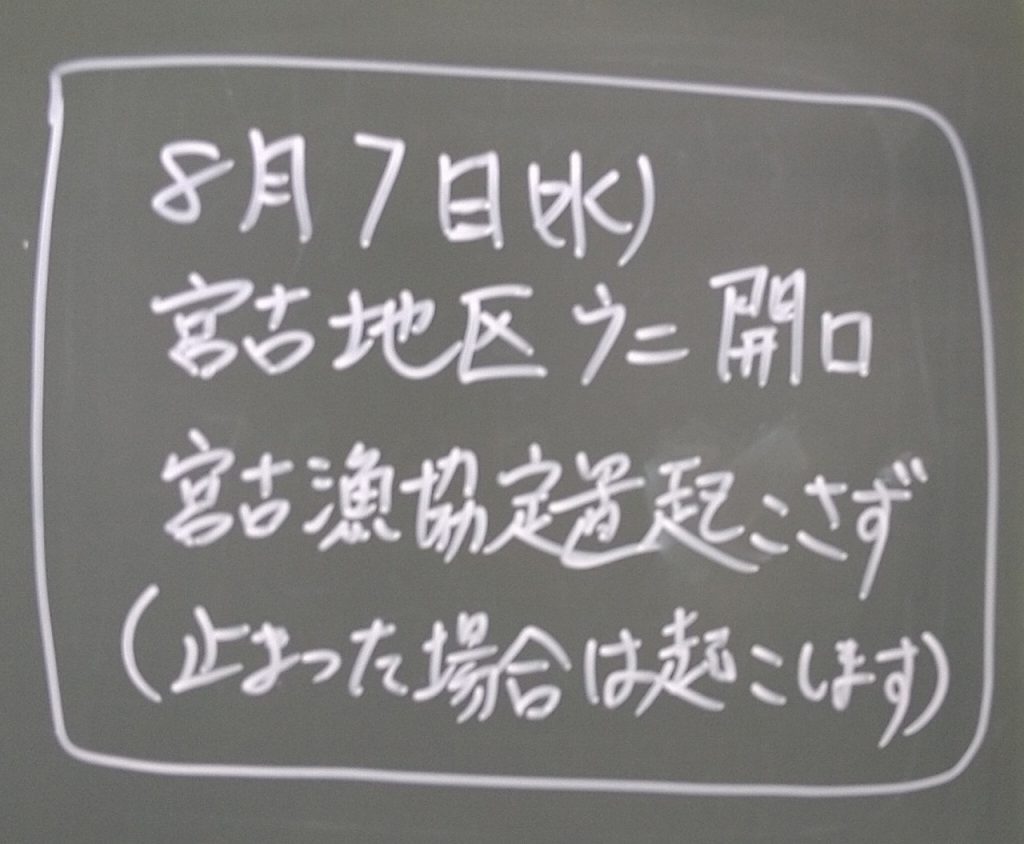 8月7日(水)
宮古地区ウニ開口
宮古漁協定置起こさず
(止まった場合は起こします)